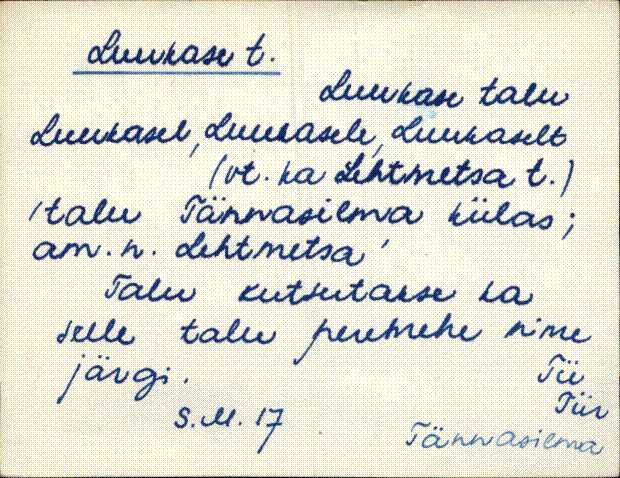 Luukase t.
Luukase talu
Luukasel, Luukasele, Luukaselt
(vt. ka Lehtmetsa t.)
'talu Tännasilma külas;
am. n. Lehtmetsa'
Talu kutsutakse ka
selle talu peremehe nime
järgi.
Tü
Tür
S.M. 17
Tännasilma